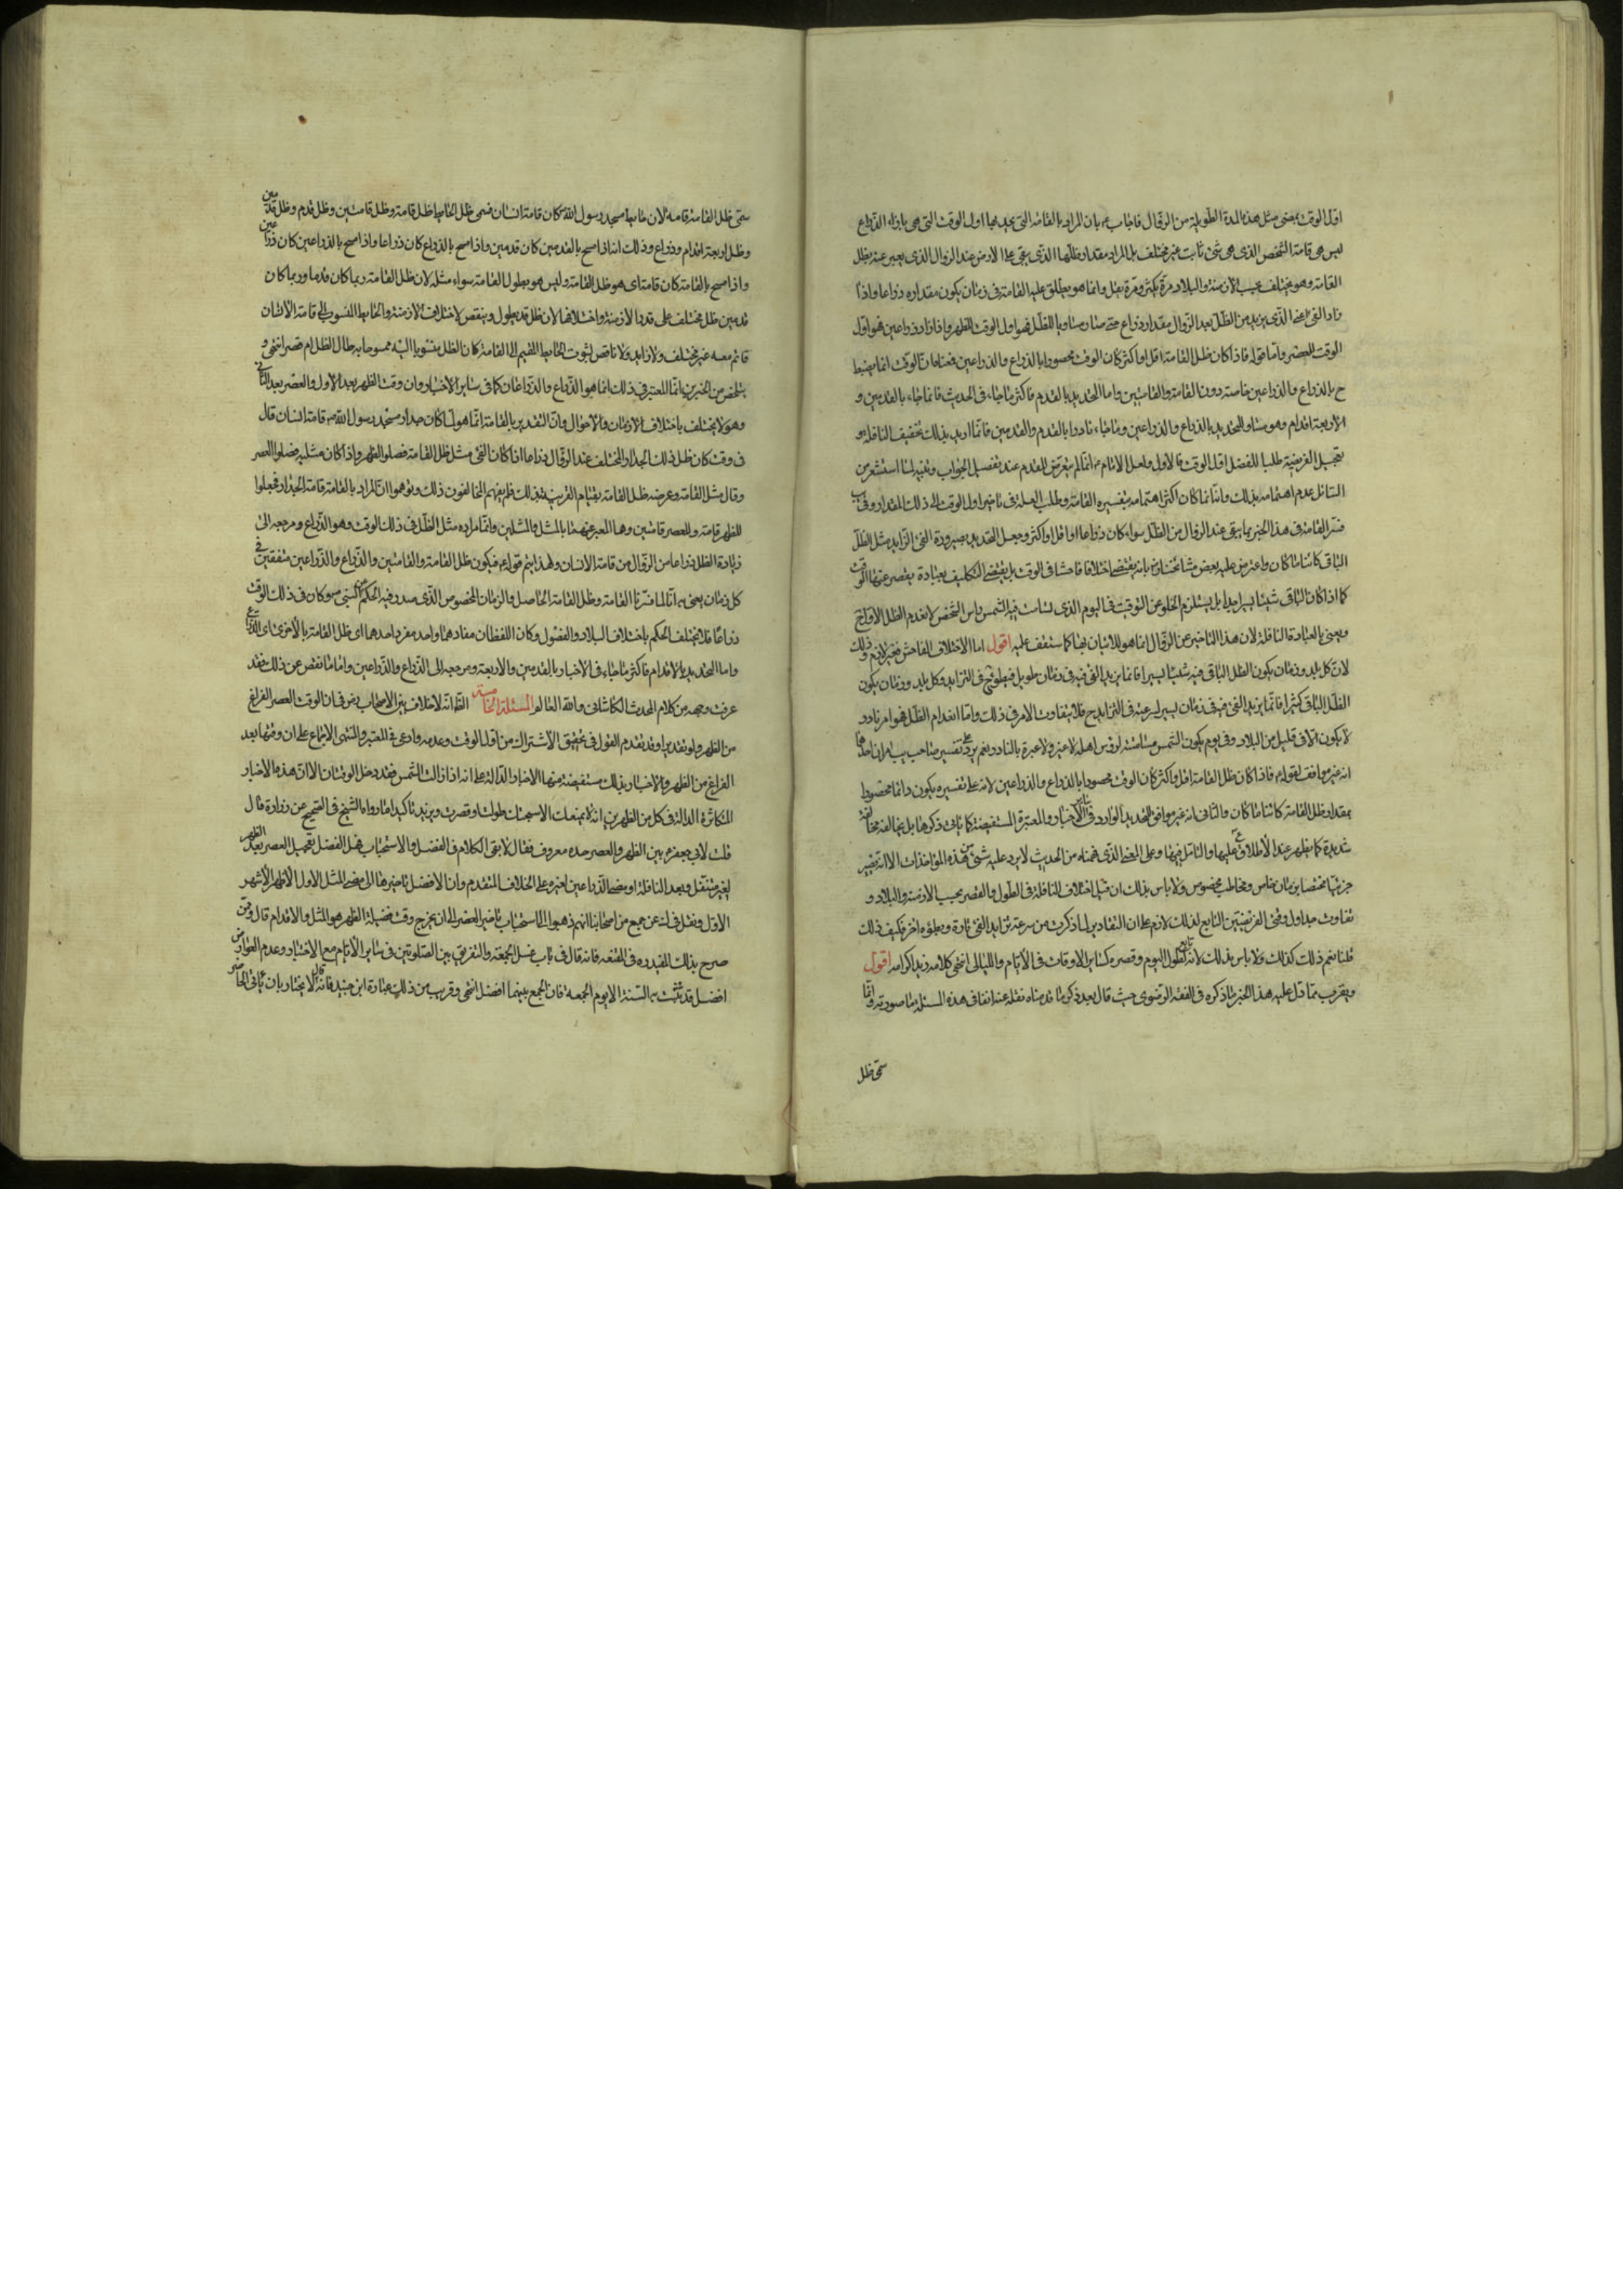 اول الوقت بمضى مثل هذه المدة الطويلة من الزوال فاجاب ع بان المراد بالقامة التى يحد بها اول الوقت التى هى بازاء الذراع
ليس هى قامة الشخص الذى هى شئ ثابت غير مختلف بل المراد مقدار ظلها الذى يبقى على الارض عند الزوال الذى يعبر عنه بظل
القامة وهو يختلف بحسب الازمنة والبلاد مرة يكثر ومرة يقل وانما هو يطلق عليه القامة فى زمان يكون مقداره ذراعا واذا
زاد الفئ اعنى الذى يزيد من الظل بعد الزوال مقدار ذراع حتى صار مساويا للظل فهو اول الوقت للظهر واذا زاد ذراعين فهو اول
الوقت للعصر واما قوله فاذا كان ظل القامة اقل او اكثر كان الوقت محصورا بالذراع والذراعين فمعناه ان الوقت انما ينضبط
ح بالذراع والذراعين خاصة دون القامة والقامتين واما التحديد بالقدم فاكثر ما جاء فى الحديث فانما جاء بالقدمين و
الاربعة اقدام وهو مساو للتحديد بالذراع والذراعين وما جاء نادرا بالقدم والقدمين فانما اريد بذلك تخفيف النافلة و
تعجيل الفريضة طلبا للفضل اول الوقت فالاول ولعل الامام ع انما لم يتعرض للقدم عند تفصيل الجواب وتبيينه لما استشعر من
السائل عدم اهتمامه بذلك وانه انما كان اكثر اهتمامه بتفسير القامة وطلب العلة فى تاخير اول الوقت الى ذلك المقدار وفى
فسر القامة فى هذا الخبر بما يبقى عند الزوال من الظل سواء كان ذراعا او اقل او اكثر وجعل التحديد بصيرورة الفئ الزايد مثل الظل
الباقى كائنا ما كان واعترض عليه بعض مشائخنا بانه يقتضى اختلافا فاحشا فى الوقت بل يقتضى التكليف بعبادة يقصر عنها الوقت
كما اذا كان الباقى شيئا يسيرا جدا بل يستلزم الخلو عن التوقيت فى اليوم الذى تسامت فيه الشمس راس الشخص لانعدام الظل الاول ح
ويعنى بالعبادة النافلة لان هذا التاخير عن الزوال انما هو للاتيان بها كما ستقف عليه اقول اما الاختلاف الفاحش فغير لازم وذلك
لان كل بلد وزمان يكون الظل الباقى فيه شيئا يسيرا فانما يزيد الفئ فيه فى زمان طويل لبطوئه ح فى التزايد وكل بلد وزمان يكون
الظل الباقى كثيرا فانما يزيد الفئ فيه فى زمان يسير لسرعته فى التزايد ح فلا يتفاوت الامر فى ذلك واما انعدام الظل فهو امر نادر
لا يكون الا فى قليل من البلاد وفى يوم يكون الشمس مسامتة لرؤس اهله لا غير ولا عبرة بالنادر نعم يرد على تفسير صاحب يب امران احدهما
انه غير موافق لقوله فاذا كان ظل القامة اقل او اكثر كان الوقت محصورا بالذراع والذراعين لانه على تفسيره يكون دائما محصورا
بمقدار ظل القامة كائنا ما كان والثانى انه غير موافق للتحديد الوارد فى ساير الاخبار المعتبرة المستفيضة كما ياتى ذكرها بل يخالفه مخالفة
شديدة كما يظهر عند الاطلاع عليها والتامل فيها وعلى المعنى الذى فهمناه من الحديث لا يرد عليه شئ من هذه المؤاخذات الا انه يصير
جزئيا مختصا بزمان خاص ومخاطب مخصوص ولا باس بذلك ان قيل اختلاف النافلة فى الطول والقصر بحسب الازمنة والبلاد و
تفاوت حد اول وقتى الفريضتين التابع لذلك لازم على ان التقادير لما ذكرت من سرعة تزايد الفئ تارة وبطؤه اخرى فكيف ذلك
قلنا نعم ذلك كذلك ولا باس بذلك لانه تابع لطول اليوم وقصره كساير الاوقات فى الايام والليالى انتهى كلامه زيد اكرامه اقول
ويقرب مما دل عليه هذا الخبر ما ذكره فى الفقه الرضوى حيث قال بعد ذكر ما قدمناه نقله عنه انفا فى هذه المسئلة ما صورته وانما
سمى ظل
سمى ظل القامة قامة لان حايط مسجد رسول الله ص كان قامة انسان فسمى ظل الحايط ظل قامة وظل قامتين وظل قدم وظل قدمين
وظل اربعة اقدام وذراع وذلك انه اذا مسح بالقدمين كان قدمين واذا مسح بالذراع كان ذراعا واذا مسح بالذراعين كان ذراعين
واذا مسح بالقامة كان قامة اى هو ظل القامة وليس هو بطول القامة سواء مثله لان ظل القامة ربما كان قدما وربما كان
قدمين ظل مختلف على قدر الازمنة واختلافها لان الظل قد يطول وينقص لاختلاف الازمنة والحايط المنسوب الى قامة الانسان
قائم معه غير مختلف ولا زايد ولا ناقص لثبوت الحايط المقيم الى القامة كان الظل منسوبا اليه ممسوحا به طال الظل ام قصر انتهى و
يتلخص من الخبرين انما المعتبر فى ذلك انما هو الذراع والذراعان كما فى ساير الاخبار وان وقت الظهر بعد الاول والعصر بعد الثانى
وهو لا يختلف باختلاف الازمان والاحوال وان التقدير بالقامة انما هو لما كان جدار مسجد رسول الله ص قامة انسان قال
فى وقت كان ظل ذلك الجدار المختلف عند الزوال ذراعا اذا كان الفئ مثل ظل القامة فصلوا الظهر واذا كان مثليه فصلوا العصر
وقال مثل القامة وعرضه ظل القامة بقيام القرينة بذلك فلم يفهم المخالفون ذلك وتوهموا ان المراد بالقامة قامة الجدار فجعلوا
للظهر قامة وللعصر قامتين وهما المعبر عنهما بالمثل والمثلين وانما مراده مثل الظل فى ذلك الوقت وهو الذراع ومرجعه الى
زيادة الظل ذراعا من الزوال من قامة الانسان ولهذا يتم قوله ع فيكون ظل القامة والقامتين والذراع والذراعين متفقين فى
كل زمان يعنى به انا لما فسرنا القامة وظل القامة الحاصل والزمان المخصوص الذى صدر فيه الحكم عن النبى ص وكان فى ذلك الوقت
ذراعا فلا يختلف الحكم باختلاف البلاد والفصول وكان اللفظان مفادهما واحد مفرد احدهما اى ظل القامة بالاخرى اى الذراع
واما التحديد بالاقدام فاكثر ما جاء فى الاخبار بالقدمين والاربعة ومرجعه الى الذراع والذراعين واما ما نقص عن ذلك فقد
عرفت وجهه من كلام المحدث الكاشانى والله العالم المسئلة الخامسة الظ انه لا خلاف بين الاصحاب رض فى ان الوقت العصر الفراغ
من الظهر ولو تقديرا وقد تقدم القول فى تحقيق الاشتراك من اول الوقت وعدمه وادعى فى المعتبر والمنتهى الاجماع على ان وقتها بعد
الفراغ من الظهر والاخبار بذلك مستفيضة منها الاخبار الدالة على انه اذا زالت الشمس فقد دخل الوقتان الا ان هذه الاخبار
المتكاثرة الدالة فى كل من الظهرين انه لا يمنعك الا سبحتك طولت او قصرت ويزيد تاكيدا ما رواه الشيخ فى الصحيح عن زرارة قال
قلت لابى جعفر ع بين الظهر والعصر حد معروف فقال لا بقى الكلام فى الفضل والاستحباب فهل الفضل تعجيل العصر بعد الظهر
لغير متنفل وبعد النافلة او مضى الذراعين لغيره على الخلاف المتقدم وان الافضل تاخيرها الى مضى المثل الاول الاظهر الاشهر
الاول ونقل فى ك عن جمع من اصحابنا انهم ذهبوا الى استحباب تاخير العصر الى ان يخرج وقت فضيلة الظهر هو المثل والاقدام قال وممن
صرح بذلك المفيد ره فى المقنعة فانه قال فى باب غسل الجمعة والتفريق بين الصلوتين فى ساير الايام مع الاختيار وعدم العوارض
افضل قد ثبتت به السنة الا يوم الجمعة فان الجمع بينهما افضل انتهى وقريب من ذلك عبارة ابن جنيد فانه قال لا يختار بان ياتى الحاضر